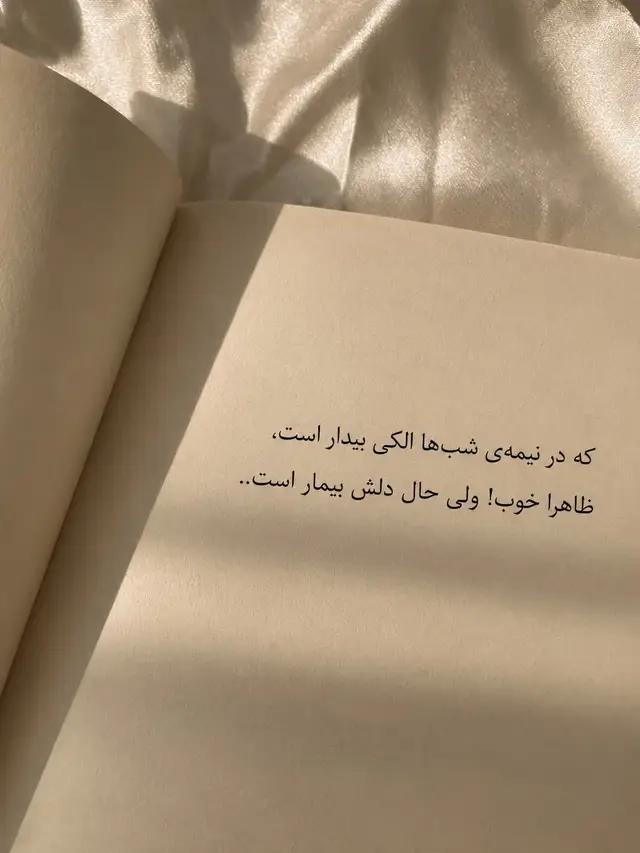 که در نیمه‌ی شب‌ها الکی بیدار است،
ظاهرا خوب! ولی حال دلش بیمار است..